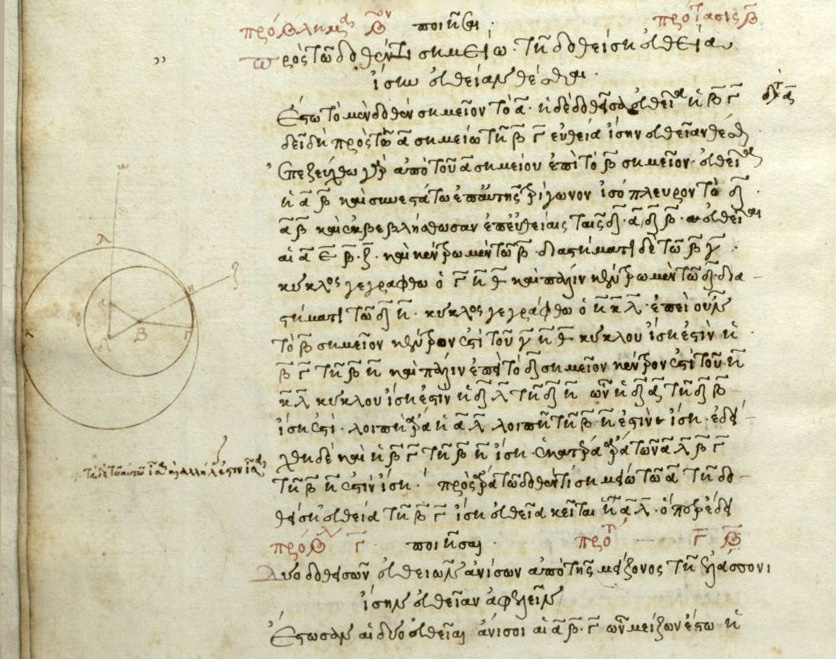 πρόβλημα β̅ον ποιῆσαι · πρότασις β̅
πρὸς τῶ δοθέντι σημείω · τῆ δοθείση εὐθεία
ἴσην εὐθεῖαν θέσθαι ·
Ἔστω τὸ μὲν δοθὲν σημεῖον τὸ α̅ · ἡ δὲ δοθεῖσα εὐθεῖα ἡ β̅ γ̅
δεῖ δὴ πρὸς τῶ α̅ σημείω τῆ β̅ γ̅ εὐθεία ἴσην εὐθεῖαν θέσθαι
Ἐπεζεύχθω γὰρ ἀπὸ τοῦ α̅ σημείου ἐπὶ τὸ β̅ σημεῖον · εὐθεῖα
ἡ α̅ β̅ καὶ συνεστάτω ἐπ' αὐτῆς τρίγωνον ἰσόπλευρον τὸ δ̅
α̅ β̅ καὶ ἐκβεβλήσθωσαν ἐπ' εὐθείας ταῖς δ̅ · α̅ / δ̅ β̅ · εὐθεῖαι
αἱ α̅ ε̅ β̅ · ζ̅ · καὶ κέντρω μὲν τῶ β̅ · διαστήματι δὲ τῶ β̅ γ̅ ·
κύκλος γεγράφθω ὁ γ̅ η̅ θ̅ καὶ πάλιν κέντρω μὲν τῶ δ̅ · δια-
στήματι τῶ δ̅ η̅ · κύκλος γεγράφθω ὁ η̅ κ̅ λ̅ · ἐπεὶ οὖν
τὸ β̅ σημεῖον κέντρον ἐστὶ τοῦ γ̅ η̅ θ̅ κύκλου ἴση ἐστὶν ἡ
β̅ γ̅ τῆ β̅ η̅ καὶ πάλιν ἐπεὶ τὸ δ̅ σημεῖον κέντρον ἐστὶ τοῦ η̅
κ̅ λ̅ κύκλου ἴση ἐστὶν ἡ δ̅ λ̅ τῆ δ̅ η̅ ὧν ἡ δ̅ α̅ τῆ δ̅ β̅
ἴση ἐστί · λοιπὴ ἄρα ἡ α̅ λ̅ λοιπῆ τῆ β̅ η̅ ἐστὶν ἴση · ἐδεί-
χθη δὲ καὶ ἡ β̅ γ̅ τῆ β̅ η̅ ἴση · ἑκατέρα ἄρα τῶν α̅ λ̅ β̅ γ̅
τῆ β̅ η̅ ἐστὶν ἴση · πρὸς ἄρα τῶ δοθέντι σημείω τῶ α̅ τῆ δο-
θείση εὐθεία τῆ β̅ γ̅ ἴση εὐθεῖα κεῖται ἡ α̅ λ̅ · ὅπερ ἔδει
πρόβλ γ̅ · ποιῆσαι πρότ γ̅ β̅
Δύο δοθεισῶν εὐθειῶν ἀνίσων ἀπὸ τῆς μείζονος τῆ ἐλάσσονι
ἴσην εὐθεῖαν ἀφελεῖν
Ἔστωσαν αἱ δύο εὐθεῖαι ἄνισοι αἱ α̅ β̅ · γ̅ ὧν μείζων ἔστω ἡ